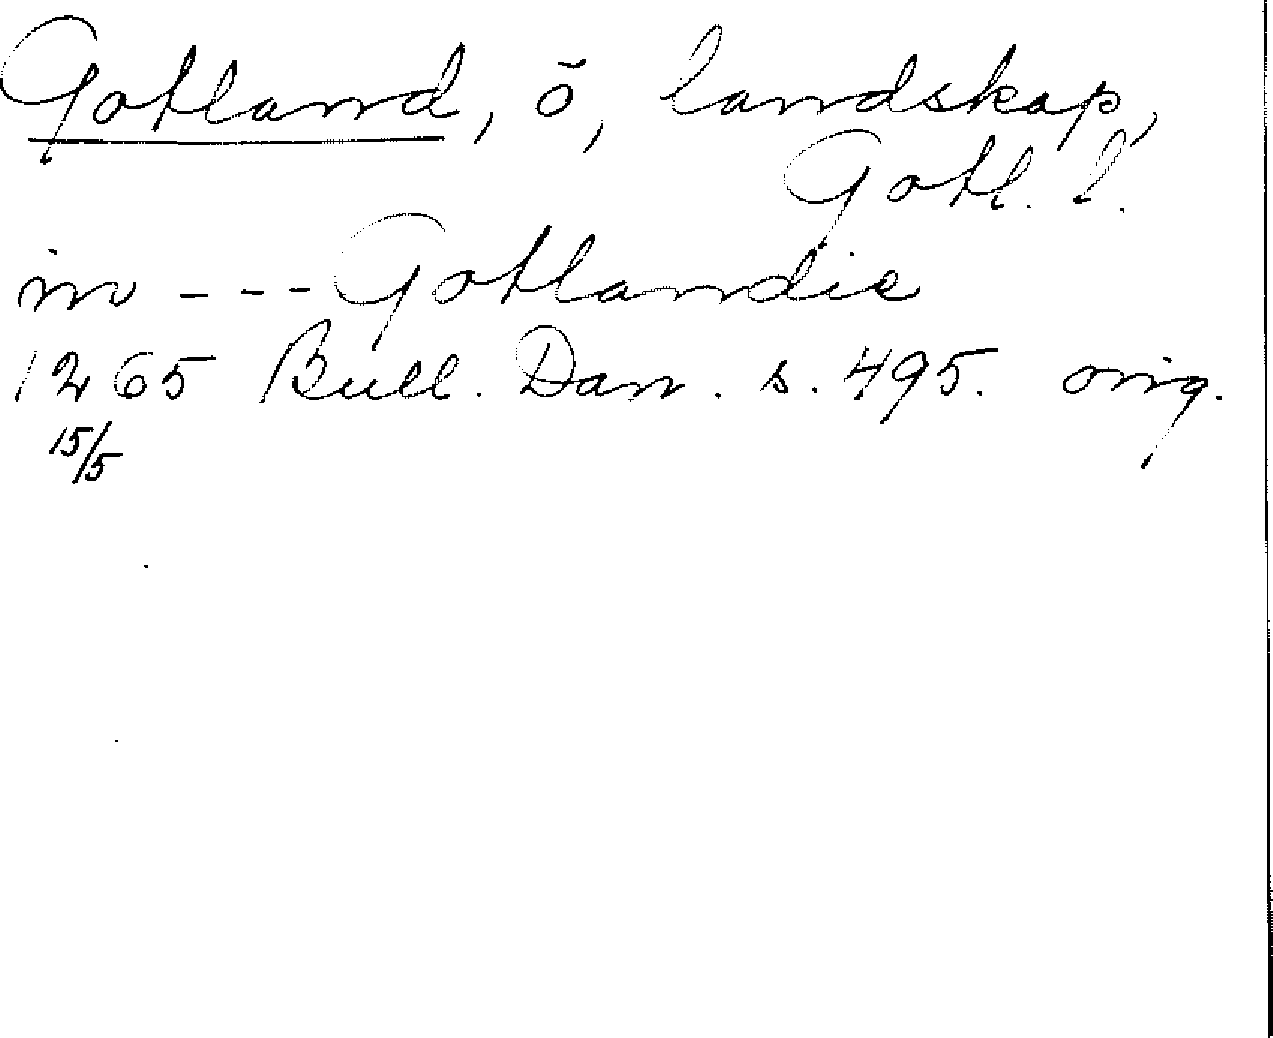 Gotland, ö, landskap,
Gotl. l.
in - - - Gotlandie
1265 Bull. Dan. s. 495. orig.
15/5